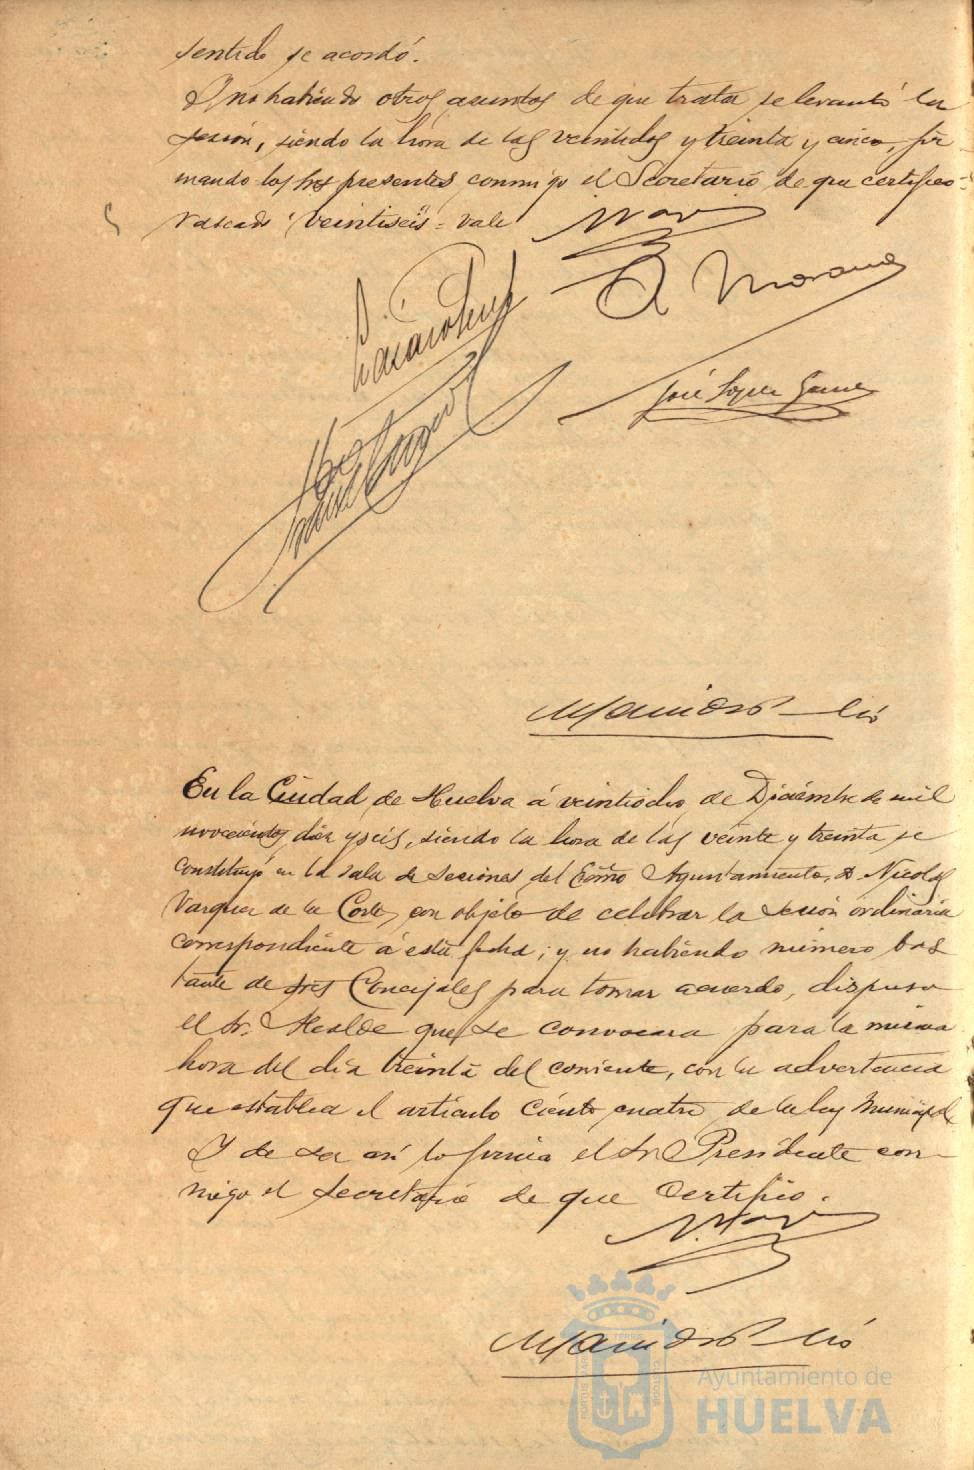 sentido se acordó.
Y no habiendo otros asuntos de que tratar se levantó la
sesión, siendo la hora de las veintidos y treinta y cinco, fir
mando los Sres presentes conmigo el Secretario de que certifico=
rascado "veintiseis"= vale
A Morano
José López Gómez
En la Ciudad de Huelva á veintiocho de Diciembre de mil
novecientos diez y seis, siendo la hora de las veinte y treinta se
constituyó en la sala de sesiones del Excmo Ayuntamiento, D. Nicolas
Vazquez de la Corte, con objeto de celebrar la sesión ordinaria
correspondiente á esta fecha; y no habiendo número bas
tante de Sres Concejales para tomar acuerdo, dispuso
el Sr. Alcalde que se convocara para la misma
hora del día treinta del corriente, con la advertencia
que establece el artículo ciento cuatro de la ley Municipal
Y de ser así lo firma el Sr Presidente con-
migo el Secretario de que certifico.
Ayuntamiento de
HUELVA